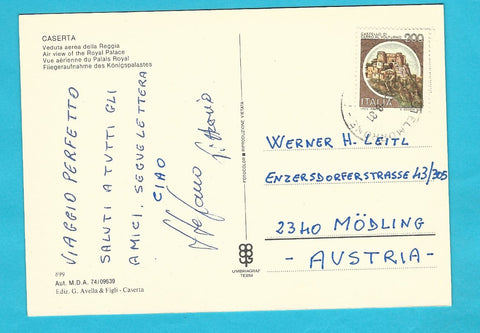 CASERTA
Veduta aerea della Reggia
Air view of the Royal Palace
Vue aérienne du Palais Royal
Fliegeraufnahme des Königspalastes
VIAGGIO PERFETTO
SALUTI A TUTTI GLI
AMICI. SEGUE LETTERA
CIAO
Stefano
899
Aut. M.D.A. 74/09639
Ediz. G. Avella & Figli - Caserta
FOTOCOLOR RIPRODUZIONE VIETATA
UMBRIAGRAF
TERNI
200
ITALIA
WERNER H. LEITL
ENZERSDORFERSTRASSE 43/305
2340 MÖDLING
- AUSTRIA -